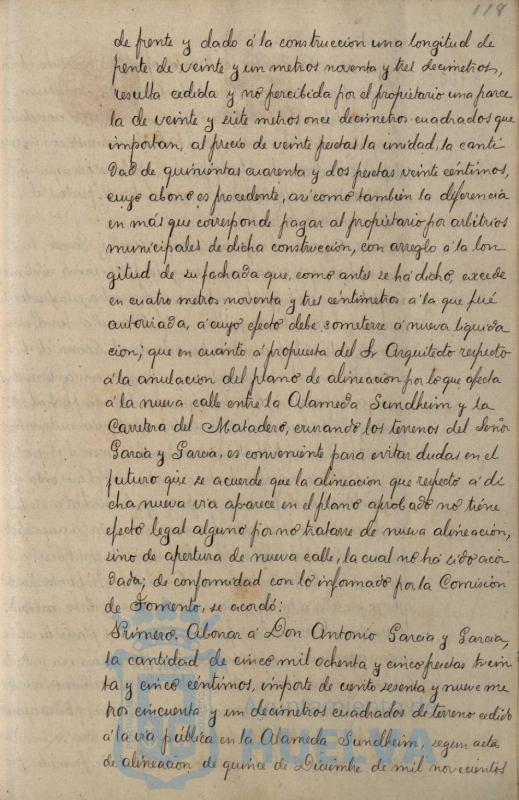 118
de frente y dado á la construccion una longitud de
frente de veinte y un metros noventa y tres decimetros,
resulta cedida y no percibida por el propietario una parce
la de veinte y siete metros once decimetros cuadrados que
importan, al precio de veinte pesetas la unidad, la canti
dad de quinientas cuarenta y dos pesetas veinte céntimos,
cuyo abono es procedente, asi como tambien la diferencia
en más que corresponde pagar al propietario por arbitrios
municipales de dicha construccion, con arreglo á la lon
gitud de su fachada que, como antes se ha dicho, excede
en cuatro metros noventa y tres céntimetros á la que fué
autorizada, á cuyo efecto debe someterse á nueva liquida
cion; que en cuanto á propuesta del Sr Arquitecto respecto
á la anulacion del plano de alineacion por lo que afecta
á la nueva calle entre la Alameda Sundheim y la
Carretera del Matadero, cruzando los terrenos del Señor
Garcia y Garcia, es conveniente para evitar dudas en el
futuro que se acuerde que la alineacion que respecto á di
cha nueva via aparece en el plano aprobado no tiene
efecto legal alguno por no tratarse de nueva alineacion,
sino de apertura de nueva calle, la cual no há sido acor
dada; de conformidad con lo informado por la Comision
de Fomento, se acordó:
Primero. Abonar á Don Antonio Garcia y Garcia,
la cantidad de cinco mil ochenta y cinco pesetas trein
ta y cinco céntimos, importe de ciento sesenta y nueve me
tros cincuenta y un decimetros cuadrados de terreno cedido
á la via pública en la Alameda Sundheim, segun acta
de alineacion de quince de Diciembre de mil novecientos
HUELVA